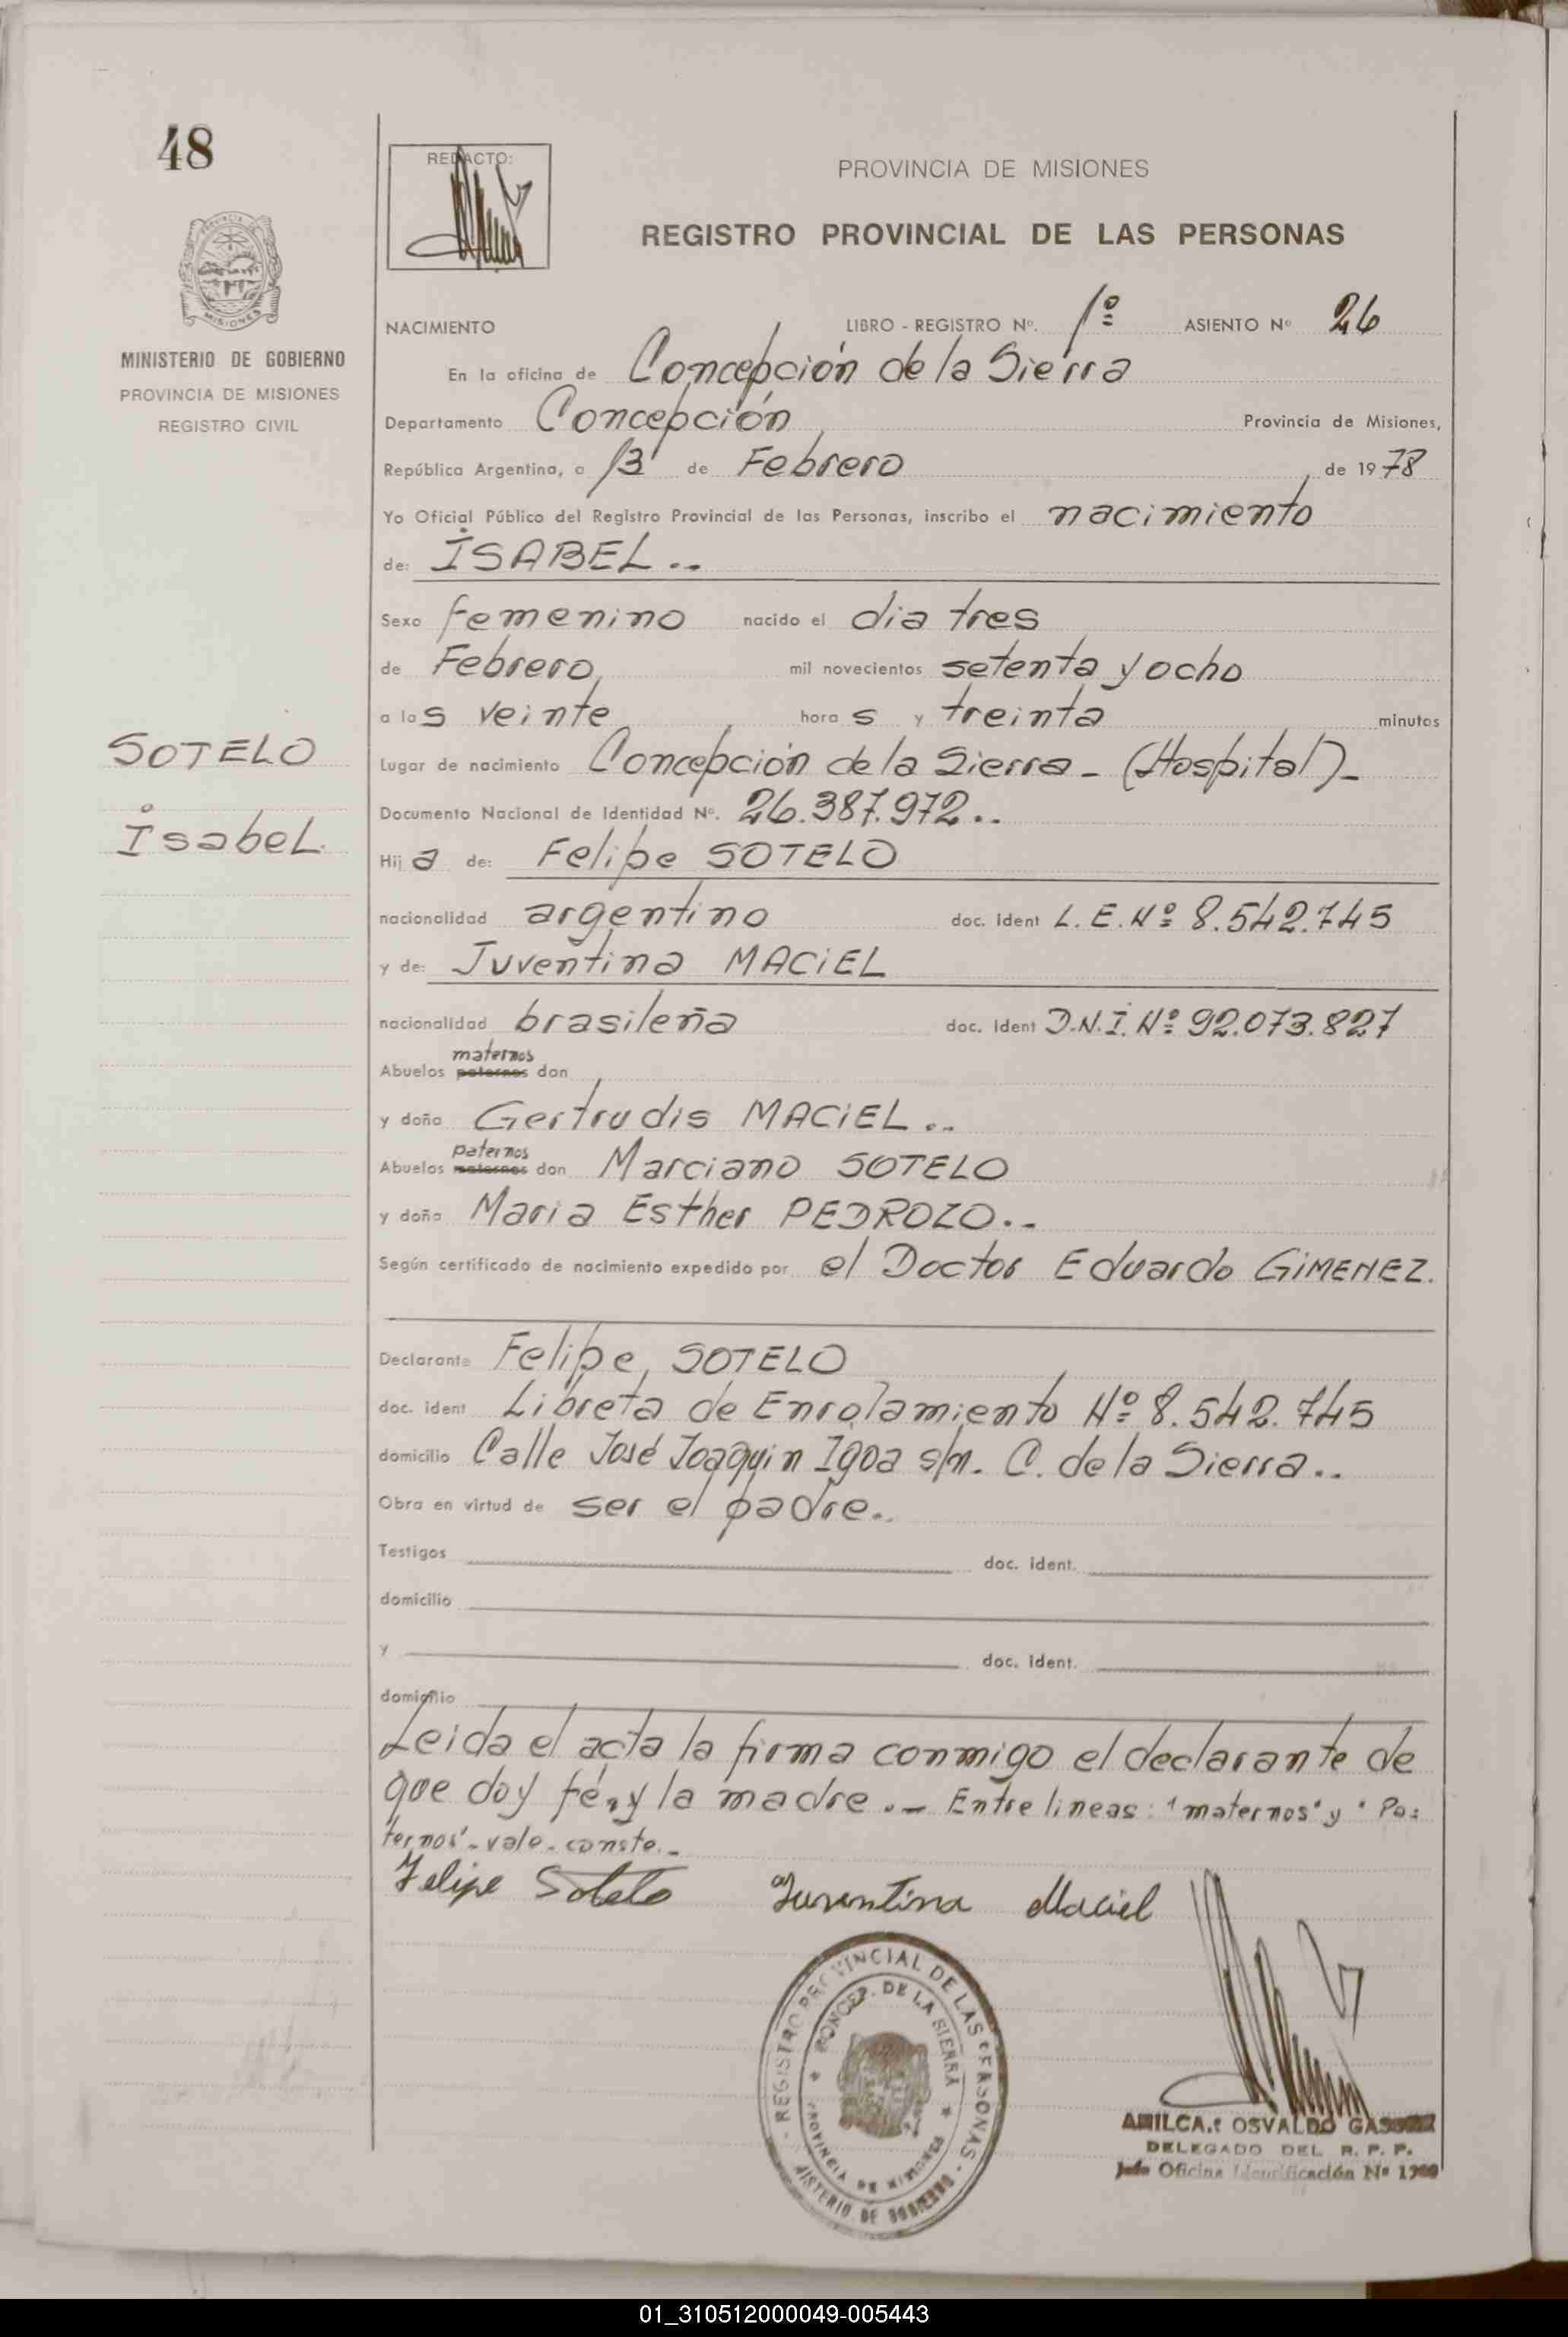 48
REDACTO:
PROVINCIA DE MISIONES
REGISTRO PROVINCIAL DE LAS PERSONAS
MISIONES
MINISTERIO DE GOBIERNO
PROVINCIA DE MISIONES
REGISTRO CIVIL
NACIMIENTO LIBRO - REGISTRO Nº. 1º ASIENTO Nº 26
En la oficina de Concepción de la Sierra
Departamento Concepción Provincia de Misiones,
República Argentina, a 13 de Febrero de 1978
Yo Oficial Público del Registro Provincial de las Personas, inscribo el nacimiento
de: ISABEL..
Sexo femenino nacido el dia tres
de Febrero mil novecientos setenta y ocho
a las veinte horas y treinta minutos
SOTELO
Isabel.
Lugar de nacimiento Concepción de la Sierra - (Hospital)-
Documento Nacional de Identidad Nº. 26.387.972..
Hija de: Felipe SOTELO
nacionalidad argentino doc. ident L.E.Nº 8.542.745
y de: Juventina MACIEL
nacionalidad brasileña doc. ident D.N.I.Nº 92.073.827
maternos
Abuelos paternos don
y doña Gertrudis MACIEL..
paternos
Abuelos maternos don Marciano SOTELO
y doña Maria Esther PEDROZO..
Según certificado de nacimiento expedido por el Doctor Eduardo GIMENEZ.
Declarante Felipe SOTELO
doc. ident Libreta de Enrolamiento Nº 8.542.745
domicilio Calle José Joaquin Igoa s/n. C. de la Sierra..
Obra en virtud de ser el padre..
Testigos doc. ident.
domicilio
y doc. ident.
domicilio
Leida el acta la firma conmigo el declarante de
que doy fé, y la madre.- Entre lineas: "maternos" y "Pa=
ternos"-vale-conste.-
Felipe Sotelo Juventina Maciel
REGISTRO PROVINCIAL DE LAS PERSONAS
CONCEP. DE LA SIERRA
PROVINCIA DE MISIONES
MINISTERIO DE GOBIERNO
OSVALDO
DELEGADO DEL R. P. P.
Jefe Oficina Identificación Nº
01_310512000049-005443